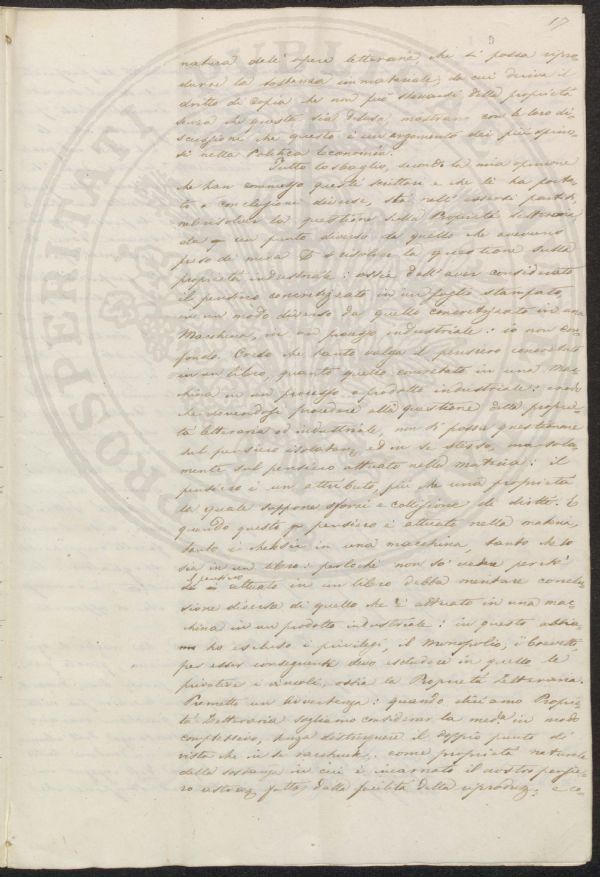 17
natura dell'opere letteraria, che si possa ripro-
durre la sostanza immateriale, da cui deriva il
dritto di copia che non può staccarsi della proprietà
senza che questa sia delusa, mostrano con le loro di-
scussioni che questo è un argomento dei più spino-
si nella Politica Economia.
Tutto lo sbaglio, secondo la mia opinione
che han commesso questi scrittori e che li ha porta-
to a conclusioni diverse, sta nell'essersi partiti
nel risolver la questione sulla Proprietà letteraria
da un punto diverso da quello che avevano
preso di mira a risolvere la questione sulla
proprietà industriale: ossia dall'aver considerato
il pensiero concretizzato in un foglio stampato
in un modo diverso da quello concretizzato in una
Macchina, in un industriale: io non con-
fondo. Credo che tanto valga il pensiero concretato
in un libro, quanto quello concretato in una Mac-
china in un processo o prodotto industriale: credo
che dovendosi procedere alla questione della proprie-
tà letteraria ed industriale, non si possa questionare
sul pensiero isolatamᵉ, ed in se stesso, ma sola-
mente sul pensiero attuato nella materia: il
pensiero è un attributo, più che una proprietà
la quale suppone sforzi e collisione di diritti. E
quando questo pensiero è attuato nella materia,
tanto è che sia in una macchina, tanto che lo
sia in un libro: perloché non so vedere perché
il pensiero attuato in un libro debba meritare conclu-
sione diversa di quello che è attuato in una mac-
china in un prodotto industriale: in questo abbia-
ho escluso i privilegi, il Monopolio, i brevetti,
per esser conseguente devo escludere in quello le
privative e i vincoli, ossia la Proprietà Letteraria.
Premetto un avvertenza: quando diciamo Proprie-
tà Letteraria vogliamo considerar la medᵃ in modo
complessivo, senza distinguere il doppio punto di
vista che in se racchiude, come proprietà naturale
della sostanza in cui è incarnato il nostro pensie-
ro astraz. fatta, dalla facilità della riproduz. e co-